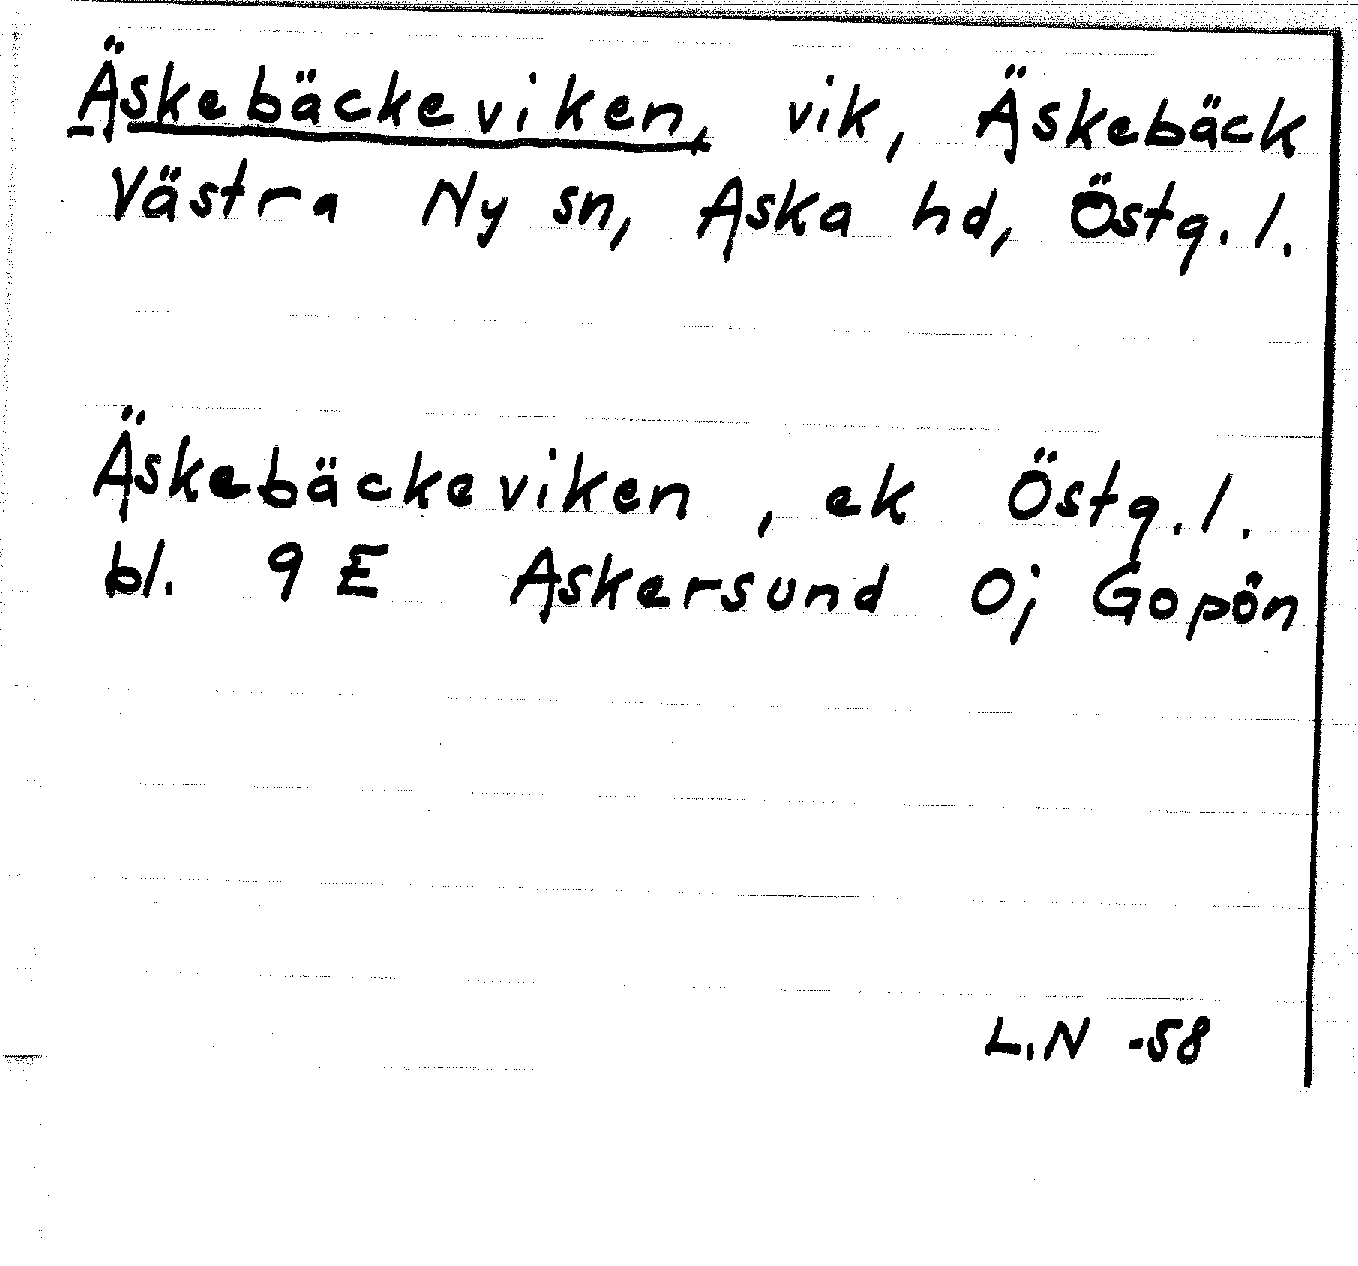 Äskebäckeviken, vik, Äskebäck
Västra Ny sn, Aska hd, Östg. l.
Äskebäckeviken, ek Östg. l.
bl. 9 E Askersund O; Gopön
L.N -58